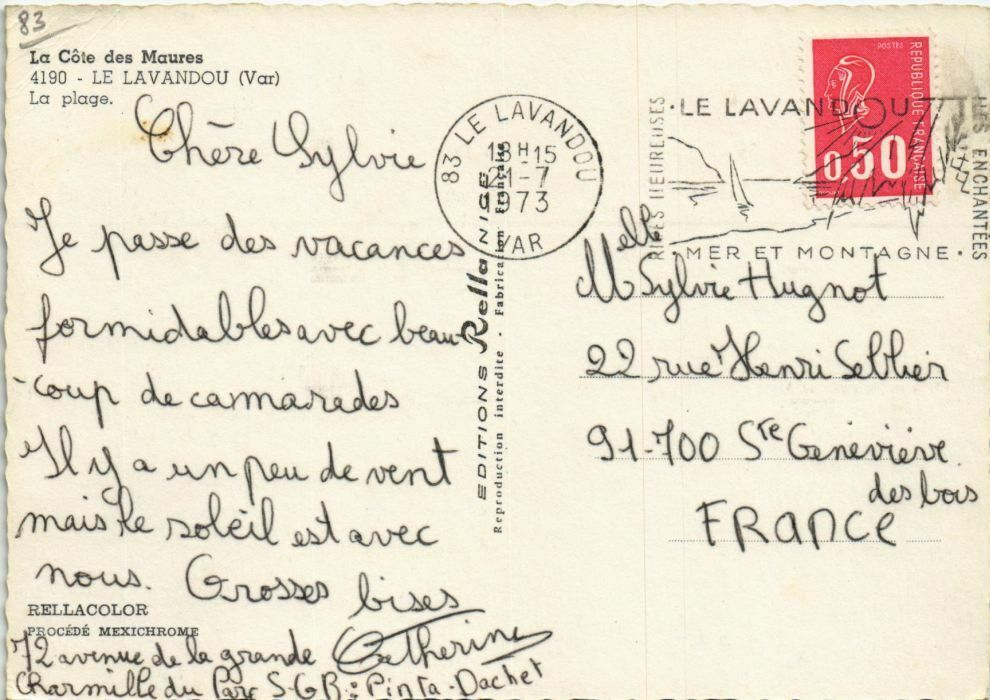 83
La Côte des Maures
4190 - LE LAVANDOU (Var)
La plage.
Chère Sylvie
Je passe des vacances
formidables avec beau-
coup de cammarades
Il y a un peu de vent
mais le soleil est avec
nous. Grosses bises
Catherine
RELLACOLOR
PROCÉDÉ MEXICHROME
72 avenue de la grande
Charmille du Parc S-G B:
EDITIONS Rella NICE
Reproduction interdite - Fabrication Française
83 LE LAVANDOU
18H-15
21-7
1973
VAR
RIVES HEUREUSES
LE LAVANDOU
MER ET MONTAGNE
ENCHANTÉES
POSTES
REPUBLIQUE FRANÇAISE
0,50
Melle
Sylvie Hugnot
22 rue Henri Sellier
91-700 Ste Geneviève
des bois
FRANCE